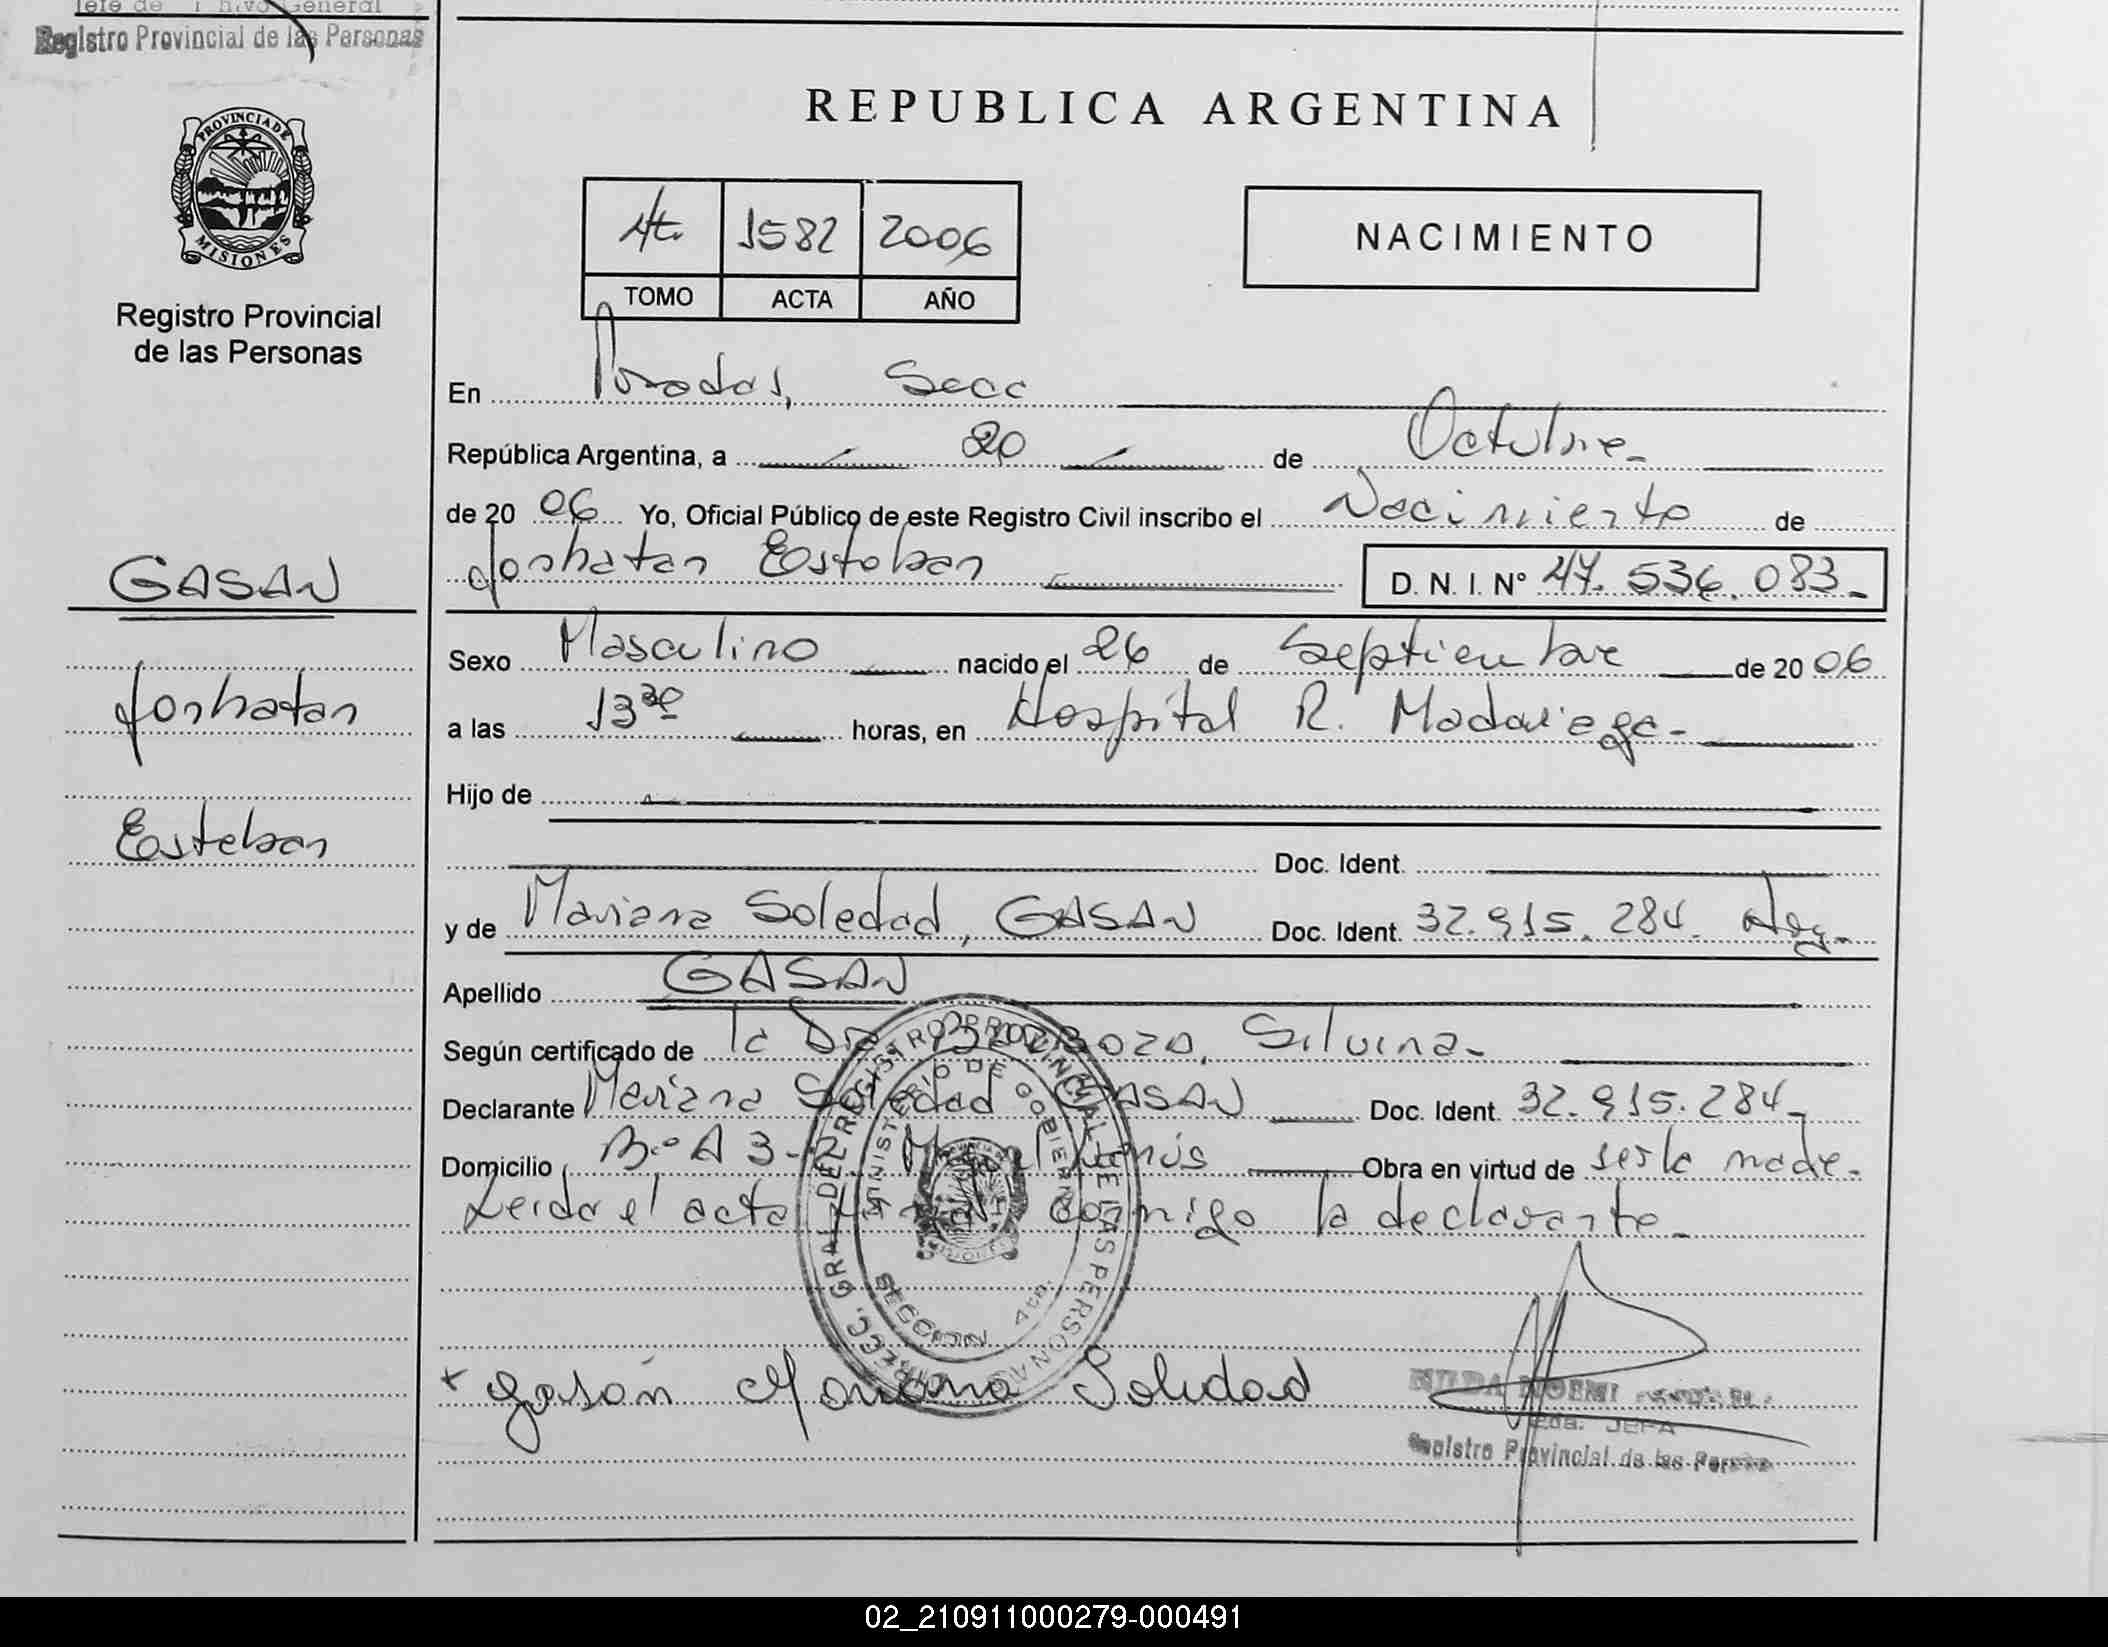 Registro Provincial de las Personas
PROVINCIA DE
MISIONES
Registro Provincial
de las Personas
GASAN
Jonhatan
Esteban
REPUBLICA ARGENTINA
4t. 1582 2006
TOMO ACTA AÑO
NACIMIENTO
En Posadas, Secc
República Argentina, a 20 de Octubre
de 2006 Yo, Oficial Público de este Registro Civil inscribo el Nacimiento de
Jonhatan Esteban D. N. I. Nº 47.536.083
Sexo Masculino nacido el 26 de Septiembre de 2006
a las 13 30 horas, en Hospital R. Madariaga
Hijo de
Doc. Ident.
y de Mariana Soledad, GASAN Doc. Ident. 32.915.284. Arg.
Apellido GASAN
Según certificado de la Dra Silvina
Declarante Mariana Soledad GASAN Doc. Ident. 32.915.284
Domicilio Bº A 3-2 Miguel Lanús Obra en virtud de ser la madre.
Leida el acta conmigo la declarante
DIRECC. GRAL DEL REGISTRO PROVINCIAL DE LAS PERSONAS
MINISTERIO DE GOBIERNO
MISIONES
SECCION 4ta.
x Gasán Mariana Soledad
NILDA NOEMI
JEFA
Registro Provincial de las Personas
02_210911000279-000491